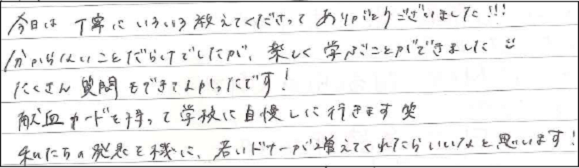 今日は丁寧にいろいろ教えてくださってありがとうございました!!!
分からないことだらけでしたが、楽しく学ぶことができました
たくさん質問もできてよかったです!
献血カードを持って学校に自慢しに行きます笑
私たちの発表を機に、若いドナーが増えてくれたらいいなと思います!